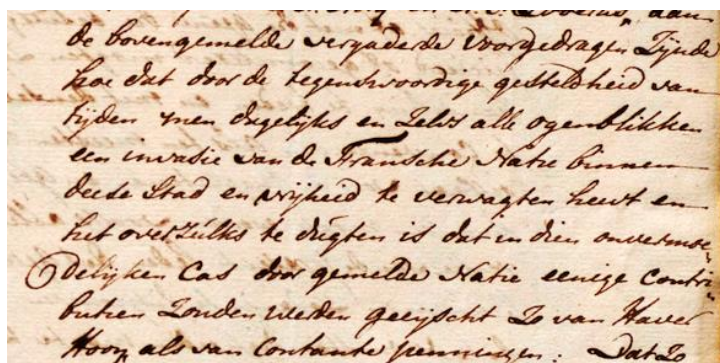 aan
de bovengemelde vergaderde voorgedragen Zijnde
hoe dat door de tegenswoordige gesteldheid van
tijden men dagelijks en Zelvs alle ogenblikken
een invasie van de Fransche Natie binnen
deese Stad en vrijheid te verwagten heevt en
het overzulks te dugten is dat in dien onvermoe
delijken Cas door gemelde Natie eenige Contri
butien Zouden werden geeijscht Zo van Haver
Hooy als van Contante penningen. Dat Z